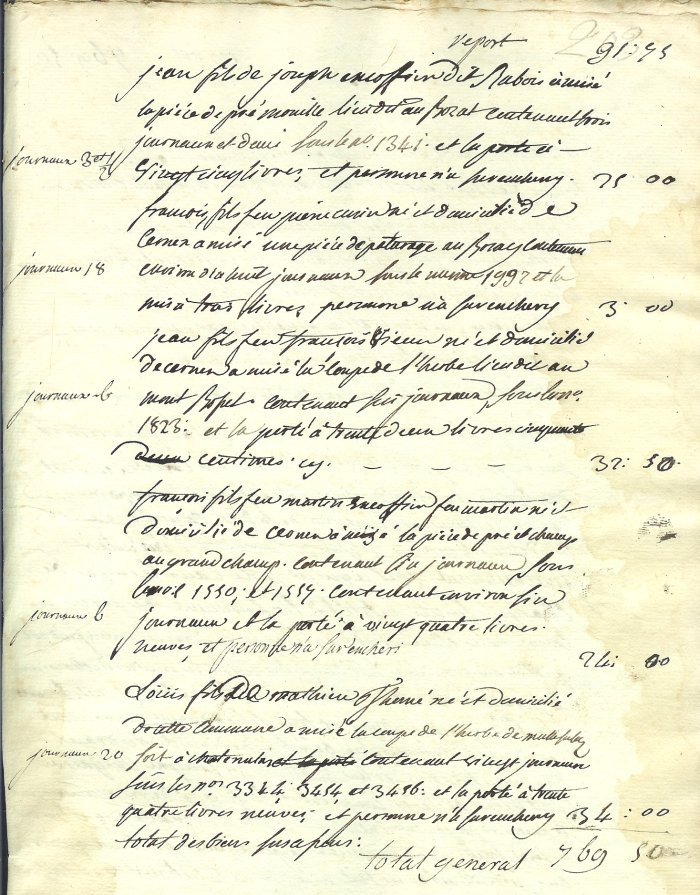 report 91: 75
jean fils de joseph encoffier dit Rabois a misé
la pièce de pré mouille lieudit au Bozat contenant trois
journaux 3 et 1/2
journaux et demi sous le no. 1341. et la porté à
vingt cinq livres, et personne n'a surencheri. 25 00
francois fils feu pierre né et domicilié de
Cernex a misé une pièce de paturage au contenant
journaux 18
environ dix huit journaux sous le numero 1997 et la
mis à trois livres, personne n'a surencheri 3 00
jean fils feu francois né et domicilié
de cernex a misé la coupe de l'herbe lieu dit au
journaux 6
mont contenant six journaux, sous le no.
1823. et la porté à trente deux livres cinquante
centimes. cy. – – – 32: 50
francois fils feu martin encoffier feu martin né et
domicilié de cernex a misé la pièce de pré et champ
au grand champ. contenant six journaux sous
1550, et 1557. contenant environ six
journaux 6
journaux et la porté à vingt quatre livres.
neuves, et personne n'a surencheri
24: 00
Louis fils de mathieu né et domicilié
de cette Commune a misé la coupe de l'herbe de
journaux 20
soit à et la porté contenant vingt journaux
sous les nos. 3344. 3454 et 3456. et la porté à trente
quatre livres neuves, et personne n'a surencheri 34: 00
total des biens :
total general 769 50